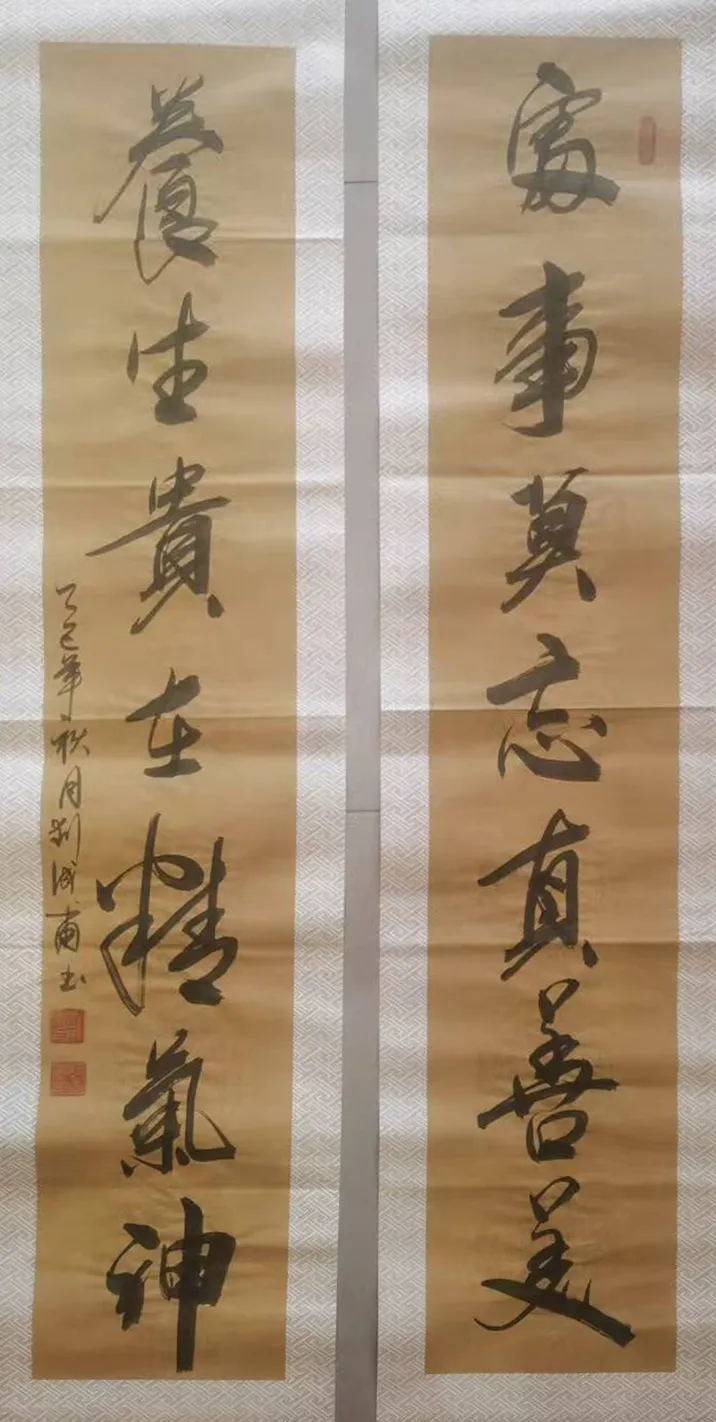 處事莫忘真善美
養生貴在精氣神
乙巳年秋月劉成甫书